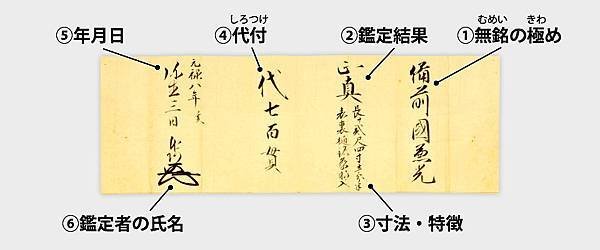 ⑤年月日
しろつけ
④代付
②鑑定結果
むめい きわ
①無銘の極め
備前國兼光
正真
長サ貳尺四寸五分
表裏樋
代七百貫
元禄八年 亥
弥生三日
③寸法・特徴
⑥鑑定者の氏名